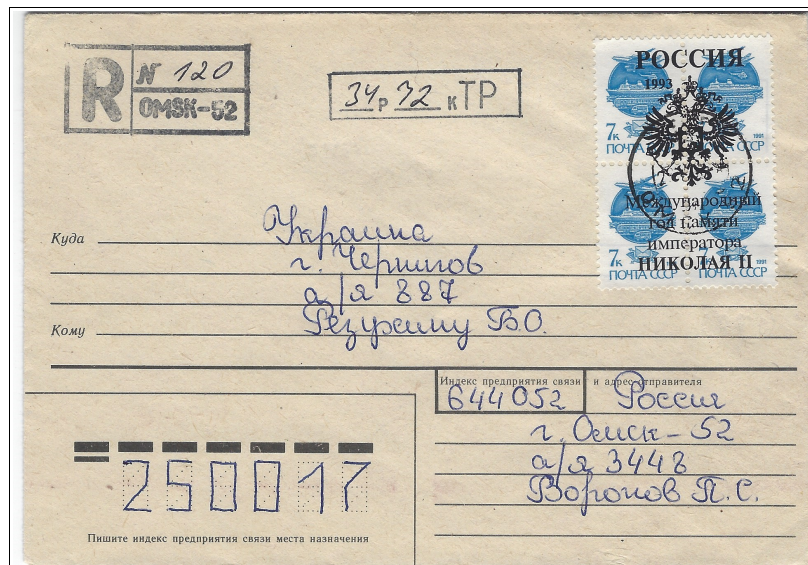 R N 120
OMSK-52
34 р 32 к ТР
РОССИЯ
1993
7к 1991
ПОЧТА СССР ПОЧТА СССР
Международный
год памяти
императора
НИКОЛАЯ II
7к 1991
ПОЧТА СССР ПОЧТА СССР
Куда Украина
г. Чернигов
а/я 887
Кому Резуеину В.О.
Индекс предприятия связи и адрес отправителя
644052 Россия
г. Омск-52
а/я 3448
Воронов П.С.
250017
Пишите индекс предприятия связи места назначения